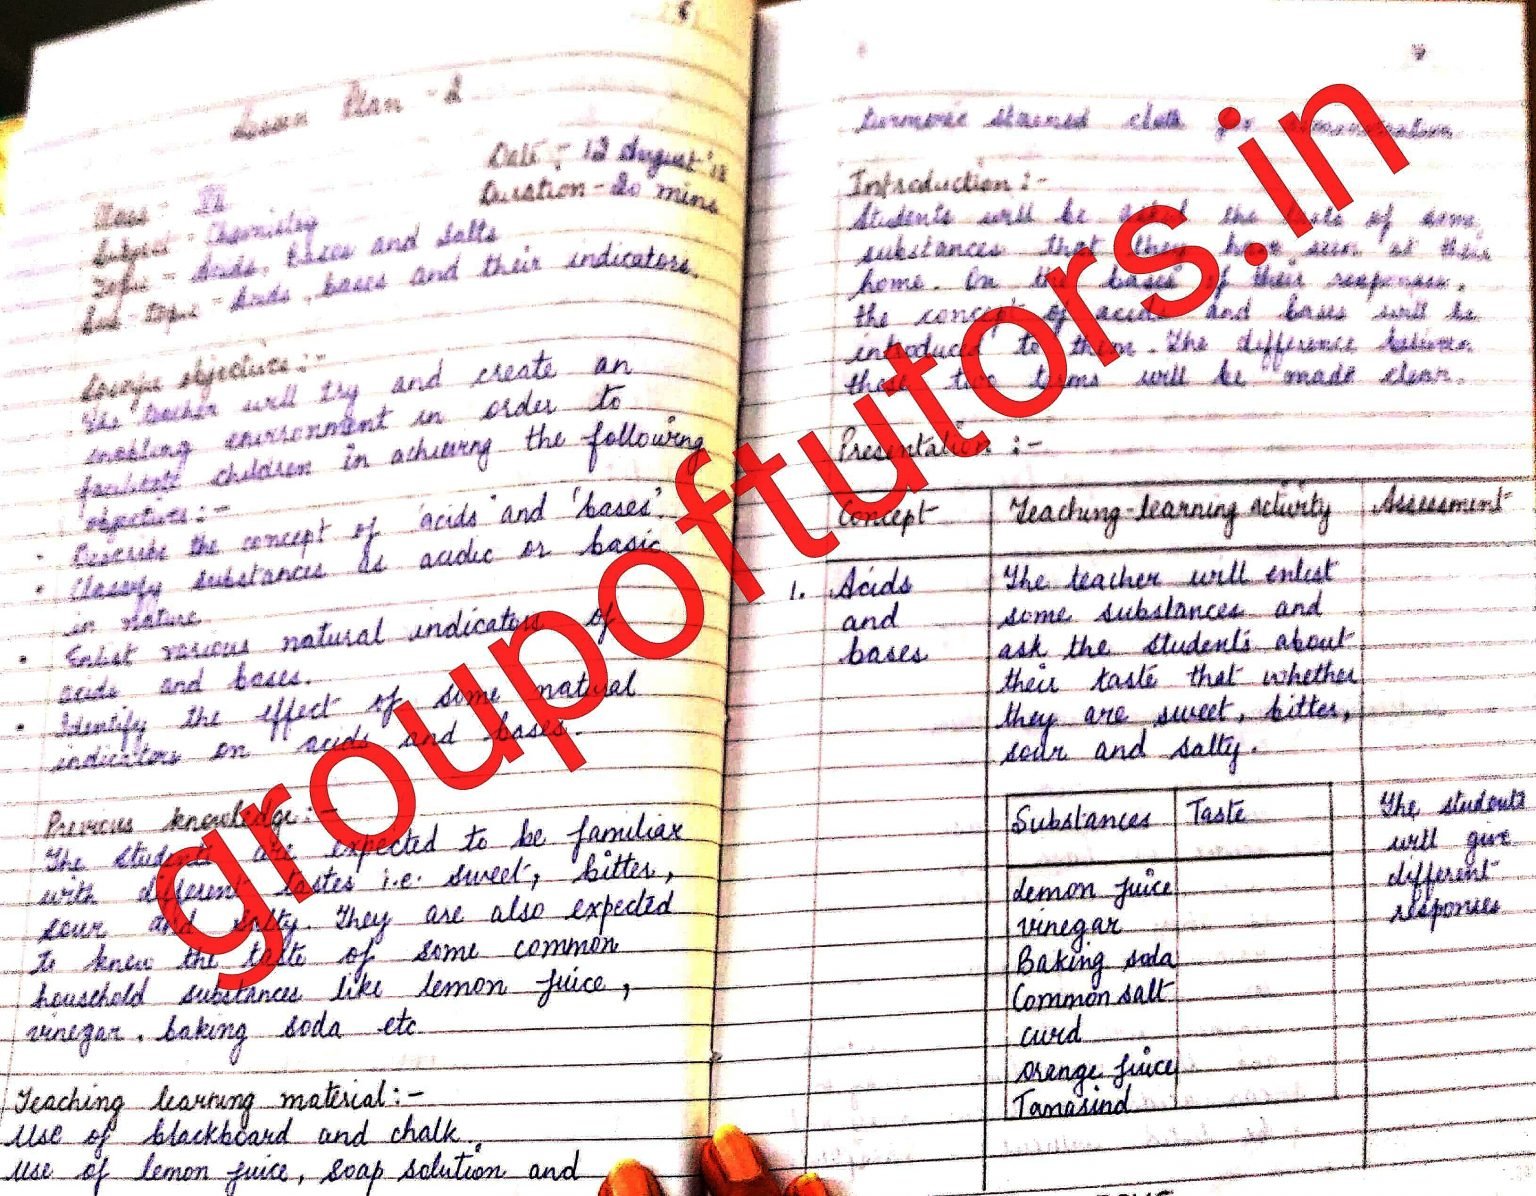 6
Lesson Plan - 2
Date :- 12 August '18
Duration - 20 mins
Class - VII
Subject - Chemistry
Topic - Acids, bases and salts
Sub-topic - Acids, bases and their indicators.
Specific objectives :-
The teacher will try and create an
enabling environment in order to
facilitate children in achieving the following
objectives :-
• Describe the concept of 'acids' and 'bases'.
• Classify substances as acidic or basic
in nature
• Enlist various natural indicators of
acids and bases.
• Identify the effect of some natural
indicators on acids and bases.
Previous knowledge :-
The students are expected to be familiar
with different tastes i.e. sweet, bitter,
sour and salty. They are also expected
to know the taste of some common
household substances like lemon juice,
vinegar, baking soda etc
Teaching learning material :-
Use of blackboard and chalk.
Use of lemon juice, soap solution and
7
turmeric stained cloth for demonstration
Introduction :-
Students will be asked the taste of some
substances that they have seen at their
home. On the bases of their responses,
the concept of acids and bases will be
introduced to them. The difference between
these two terms will be made clear.
Presentation :-
Concept Teaching-learning activity Assessment
1. Acids
and
bases
The teacher will enlist
some substances and
ask the students about
their taste that whether
they are sweet, bitter,
sour and salty.
Substances Taste
Lemon juice
vinegar
Baking soda
Common salt
curd
orange juice
Tamarind
The students
will give
different
responses
groupoftutors.in